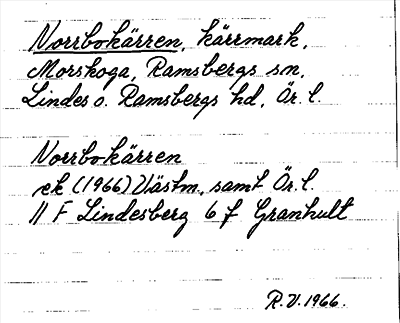 Norrbokärren, kärrmark,
Morskoga, Ramsbergs sn,
Lindes o. Ramsbergs hd, Ör. l.
Norrbokärren
ek (1966) Västm. samt Ör. l.
11 F Lindesberg 6 f Granhult
R.V. 1966.